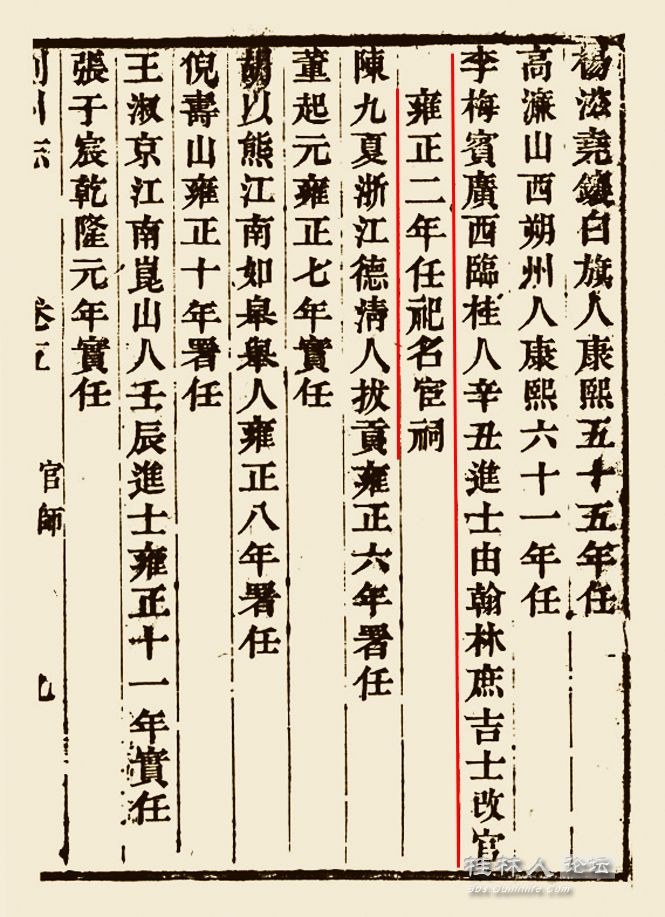 楊滋堯鑲白旗人康熙五十五年任
高濂山西朔州人康熙六十一年任
李梅賓廣西臨桂人辛丑進士由翰林庶吉士改官
雍正二年任祀名宦祠
陳九夏浙江德清人拔貢雍正六年署任
董起元雍正七年實任
胡以熊江南如皋舉人雍正八年署任
倪壽山雍正十年署任
王淑京江南崑山人壬辰進士雍正十一年實任
張于宸乾隆元年實任
州志 卷五 官師 九
桂林人论坛
bbs.Guilinlife.com